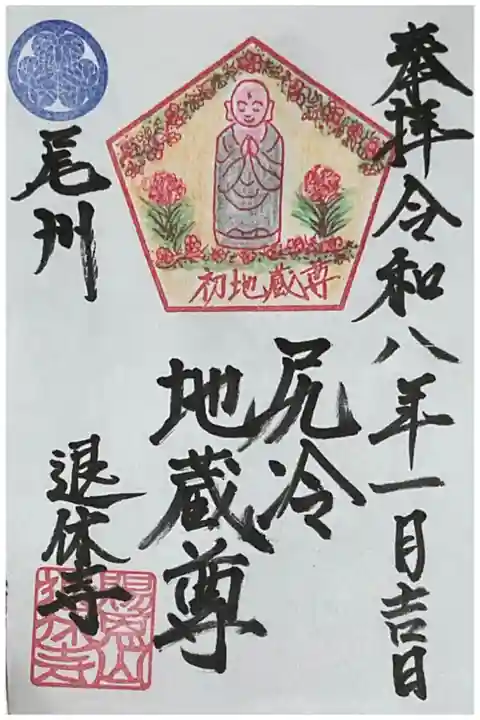 奉拝令和八年一月吉日
初地蔵尊
尻冷
地蔵尊
尾州
退休寺
賜恩山
退休寺